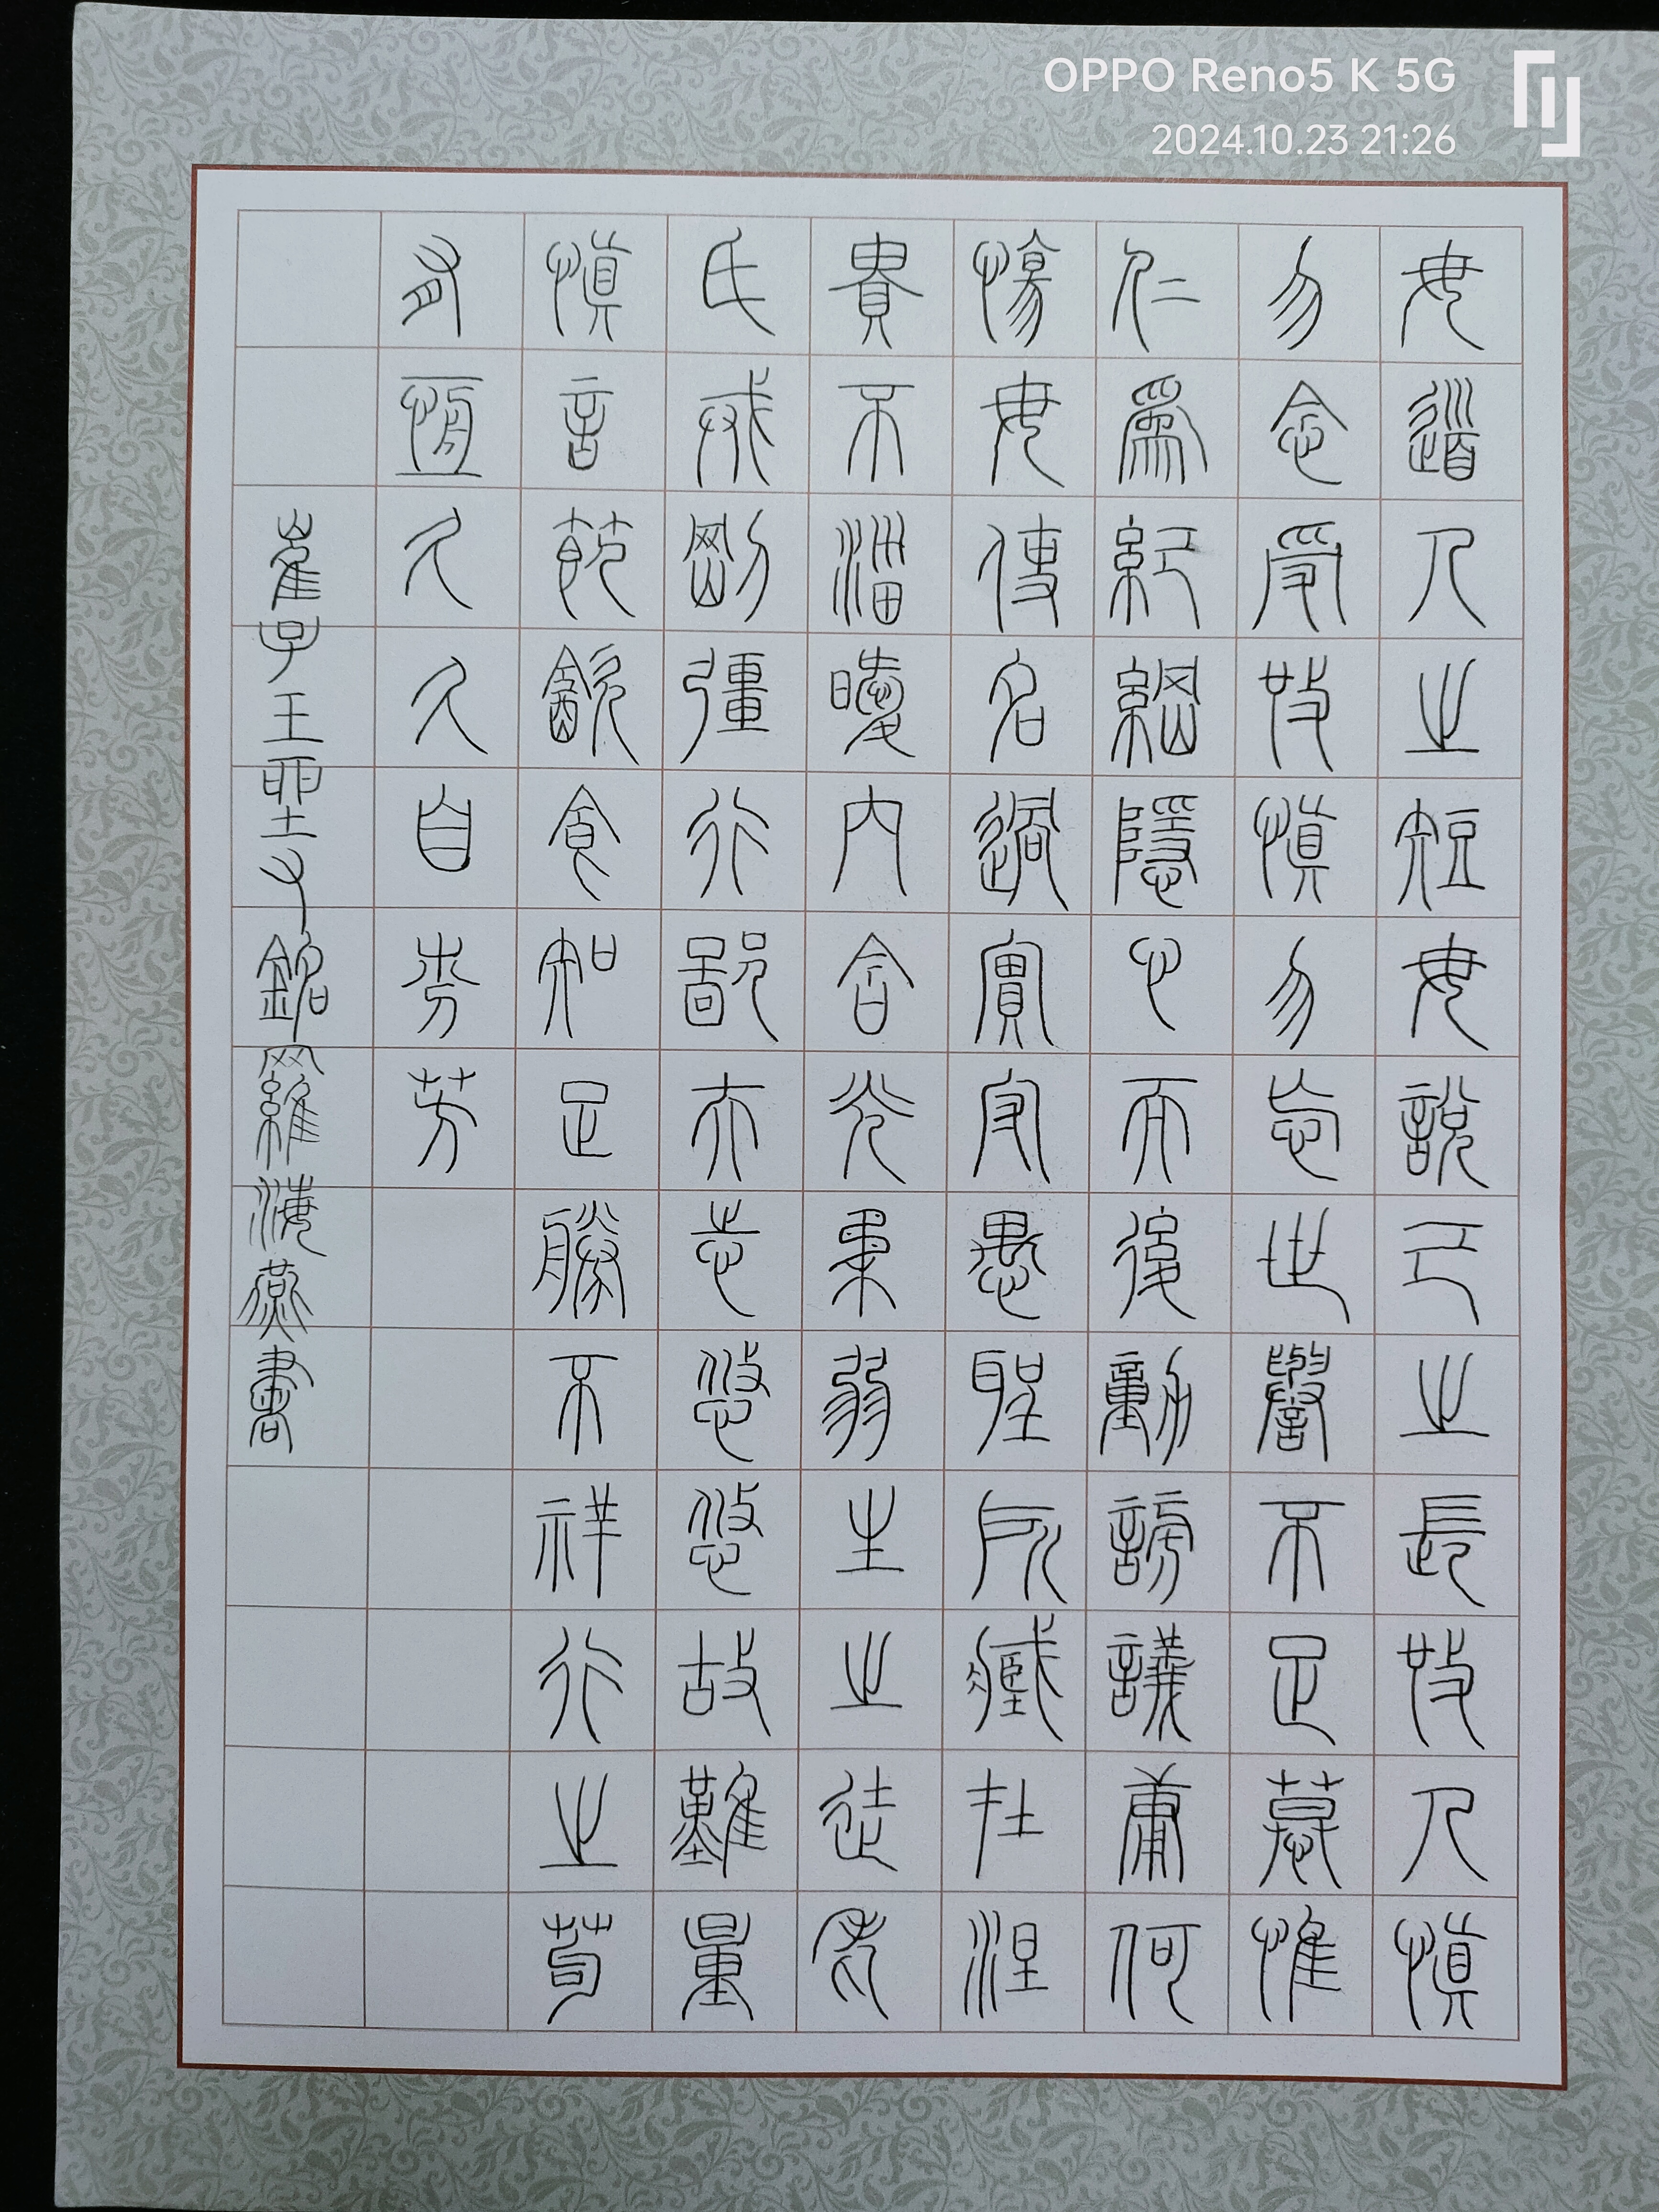 OPPO Reno5 K 5G
2024.10.23 21:26
毋道人之短毋說己之長施人慎
勿念受施慎勿忘世譽不足慕惟
仁為紀綱隱心而後動謗議庸何
傷毋使名過實守愚聖所臧在涅
貴不淄曖內含光柔弱生之徒老
氏戒剛彊行鄙夫志悠悠故難量
慎言節飲食知足勝不祥行之苟
有恆久久自芬芳
崔子玉座右銘羅海燕書